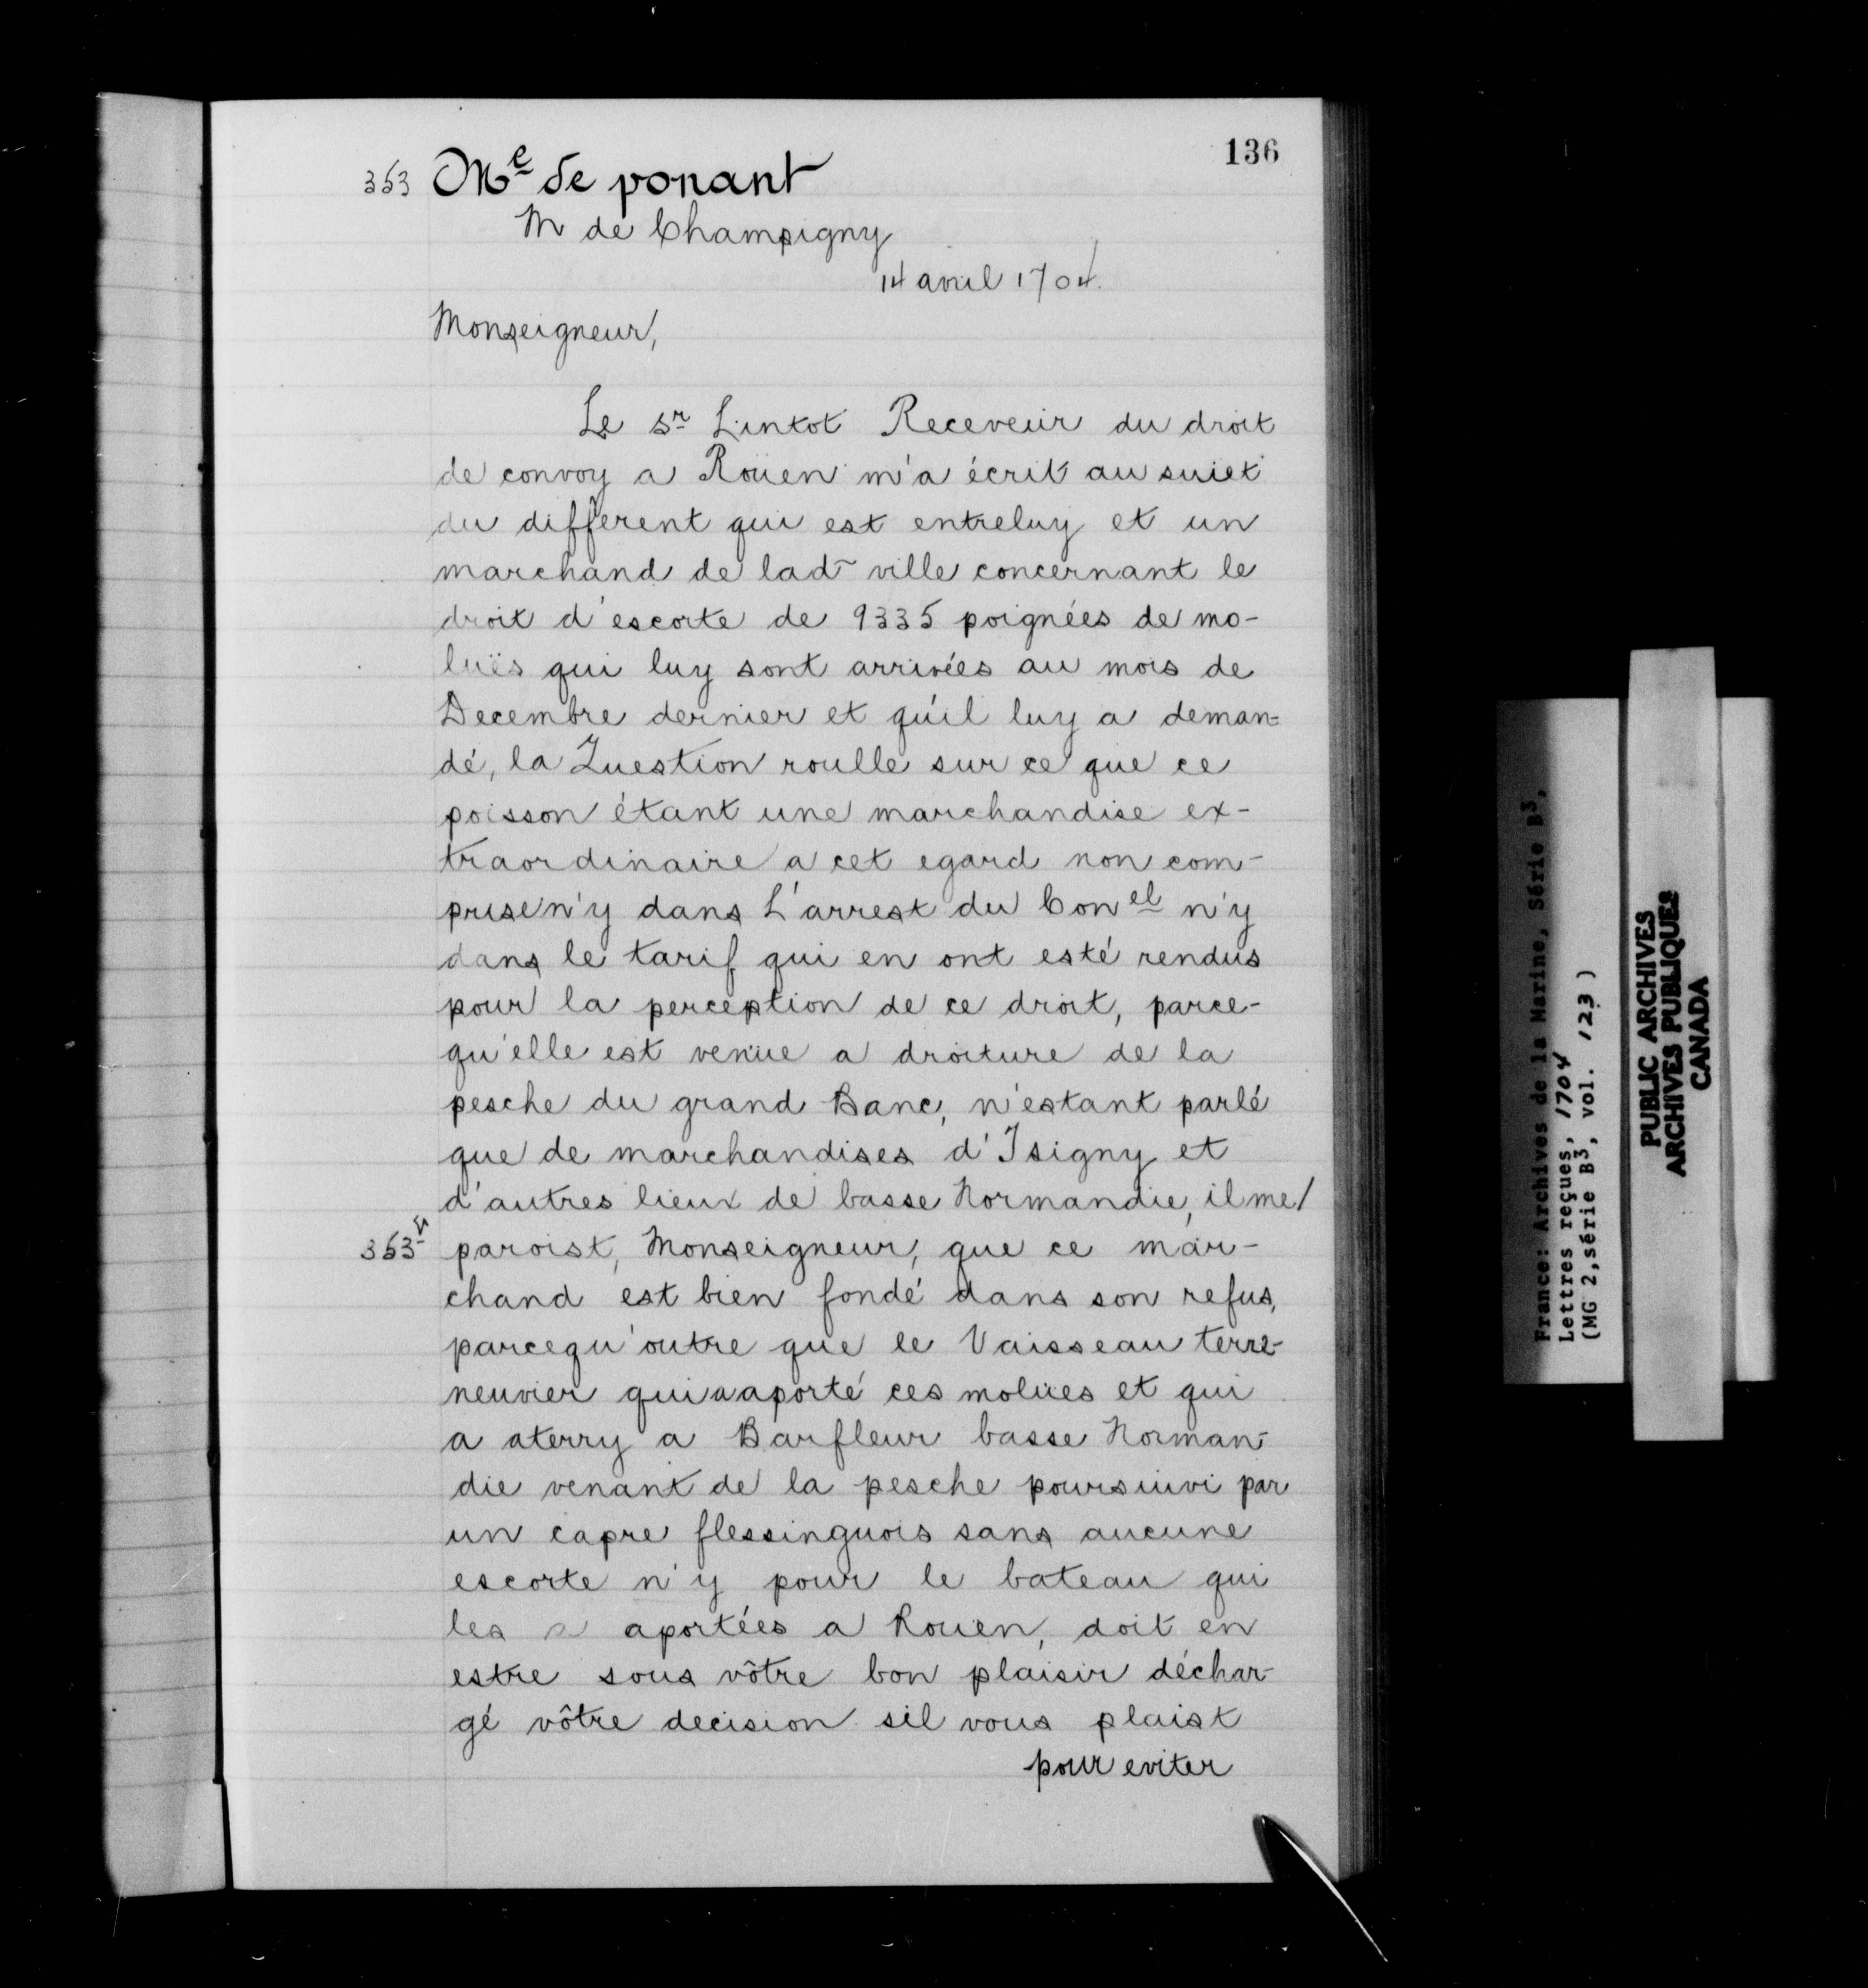 136
363 Me de ponant
M de Champigny
14 avril 1704.
Monseigneur,
Le Sr Lintot Receveur du droit
de convoy a Roüen m'a écrit au suiet
du different qui est entreluy et un
marchand de ladt ville concernant le
droit d'escorte de 9335 poignées de mo-
luës qui luy sont arrivées au mois de
Decembre dernier et qu'il luy a deman=
dé, la Question roulle sur ce que ce
poisson étant une marchandise ex-
traordinaire a cet egard non com-
prise n'y dans L'arrest du Conel n'y
dans le tarif qui en ont esté rendus
pour la perception de ce droit, parce-
qu'elle est venüe a droiture de la
pesche du grand Banc, n'estant parlé
que de marchandises d'Isigny et
d'autres lieux de basse Normandie, il me/
363v paroist, Monseigneur, que ce mar-
chand est bien fondé dans son refus,
parcequ'outre que le Vaisseau terre-
neuvier qui a aporté ces molües et qui
a aterry a Barfleur basse Norman-
die venant de la pesche poursuivi par
un capre flessinguois sans aucune
escorte n'y pour le bateau qui
les a aportées a Rouen, doit en
estre sous vôtre bon plaisir déchar-
gé vôtre decision sil vous plaist
pour eviter
France: Archives de la Marine, Série B3,
Lettres reçues, 1704
(MG 2, série B3, vol. 123)
PUBLIC ARCHIVES
ARCHIVES PUBLIQUES
CANADA